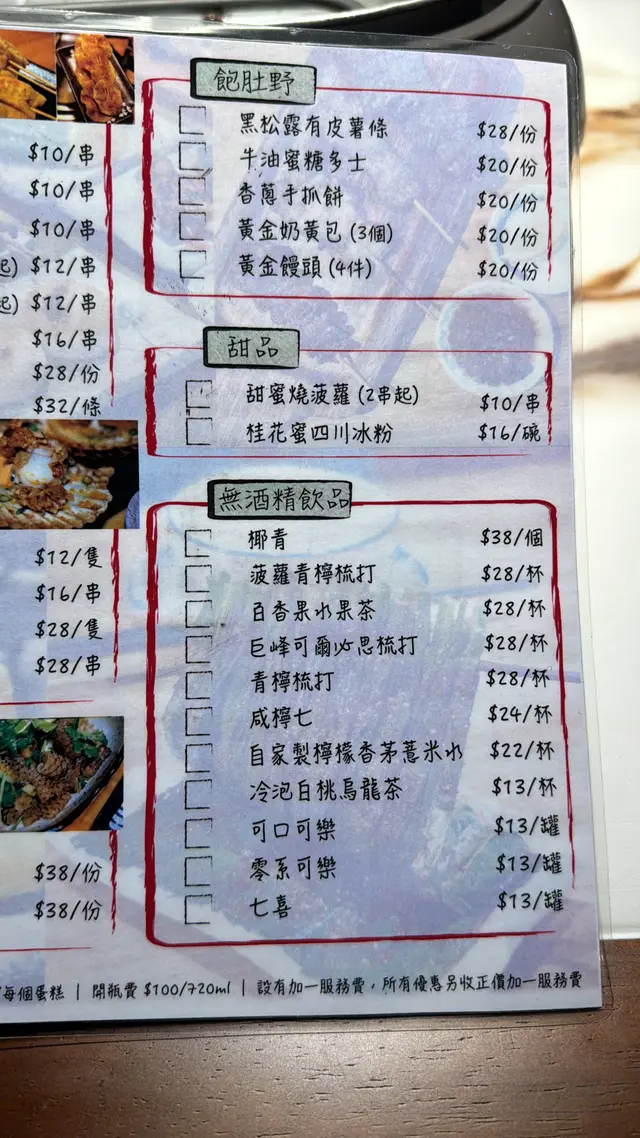 $10/串
$10/串
$10/串
起) $12/串
起) $12/串
$16/串
$28/份
$32/條
$12/隻
$16/串
$28/隻
$28/串
$38/份
$38/份
飽肚野
黑松露有皮薯條 $28/份
牛油蜜糖多士 $20/份
香蔥手抓餅 $20/份
黃金奶黃包 (3個) $20/份
黃金饅頭 (4件) $20/份
甜品
甜蜜燒菠蘿 (2串起) $10/串
桂花蜜四川冰粉 $16/碗
無酒精飲品
椰青 $38/個
菠蘿青檸梳打 $28/杯
百香果水果茶 $28/杯
巨峰可爾必思梳打 $28/杯
青檸梳打 $28/杯
咸檸七 $24/杯
自家製檸檬香茅薏米水 $22/杯
冷泡白桃烏龍茶 $13/杯
可口可樂 $13/罐
零系可樂 $13/罐
七喜 $13/罐
每個蛋糕 | 開瓶費 $100/720ml | 設有加一服務費，所有優惠另收正價加一服務費